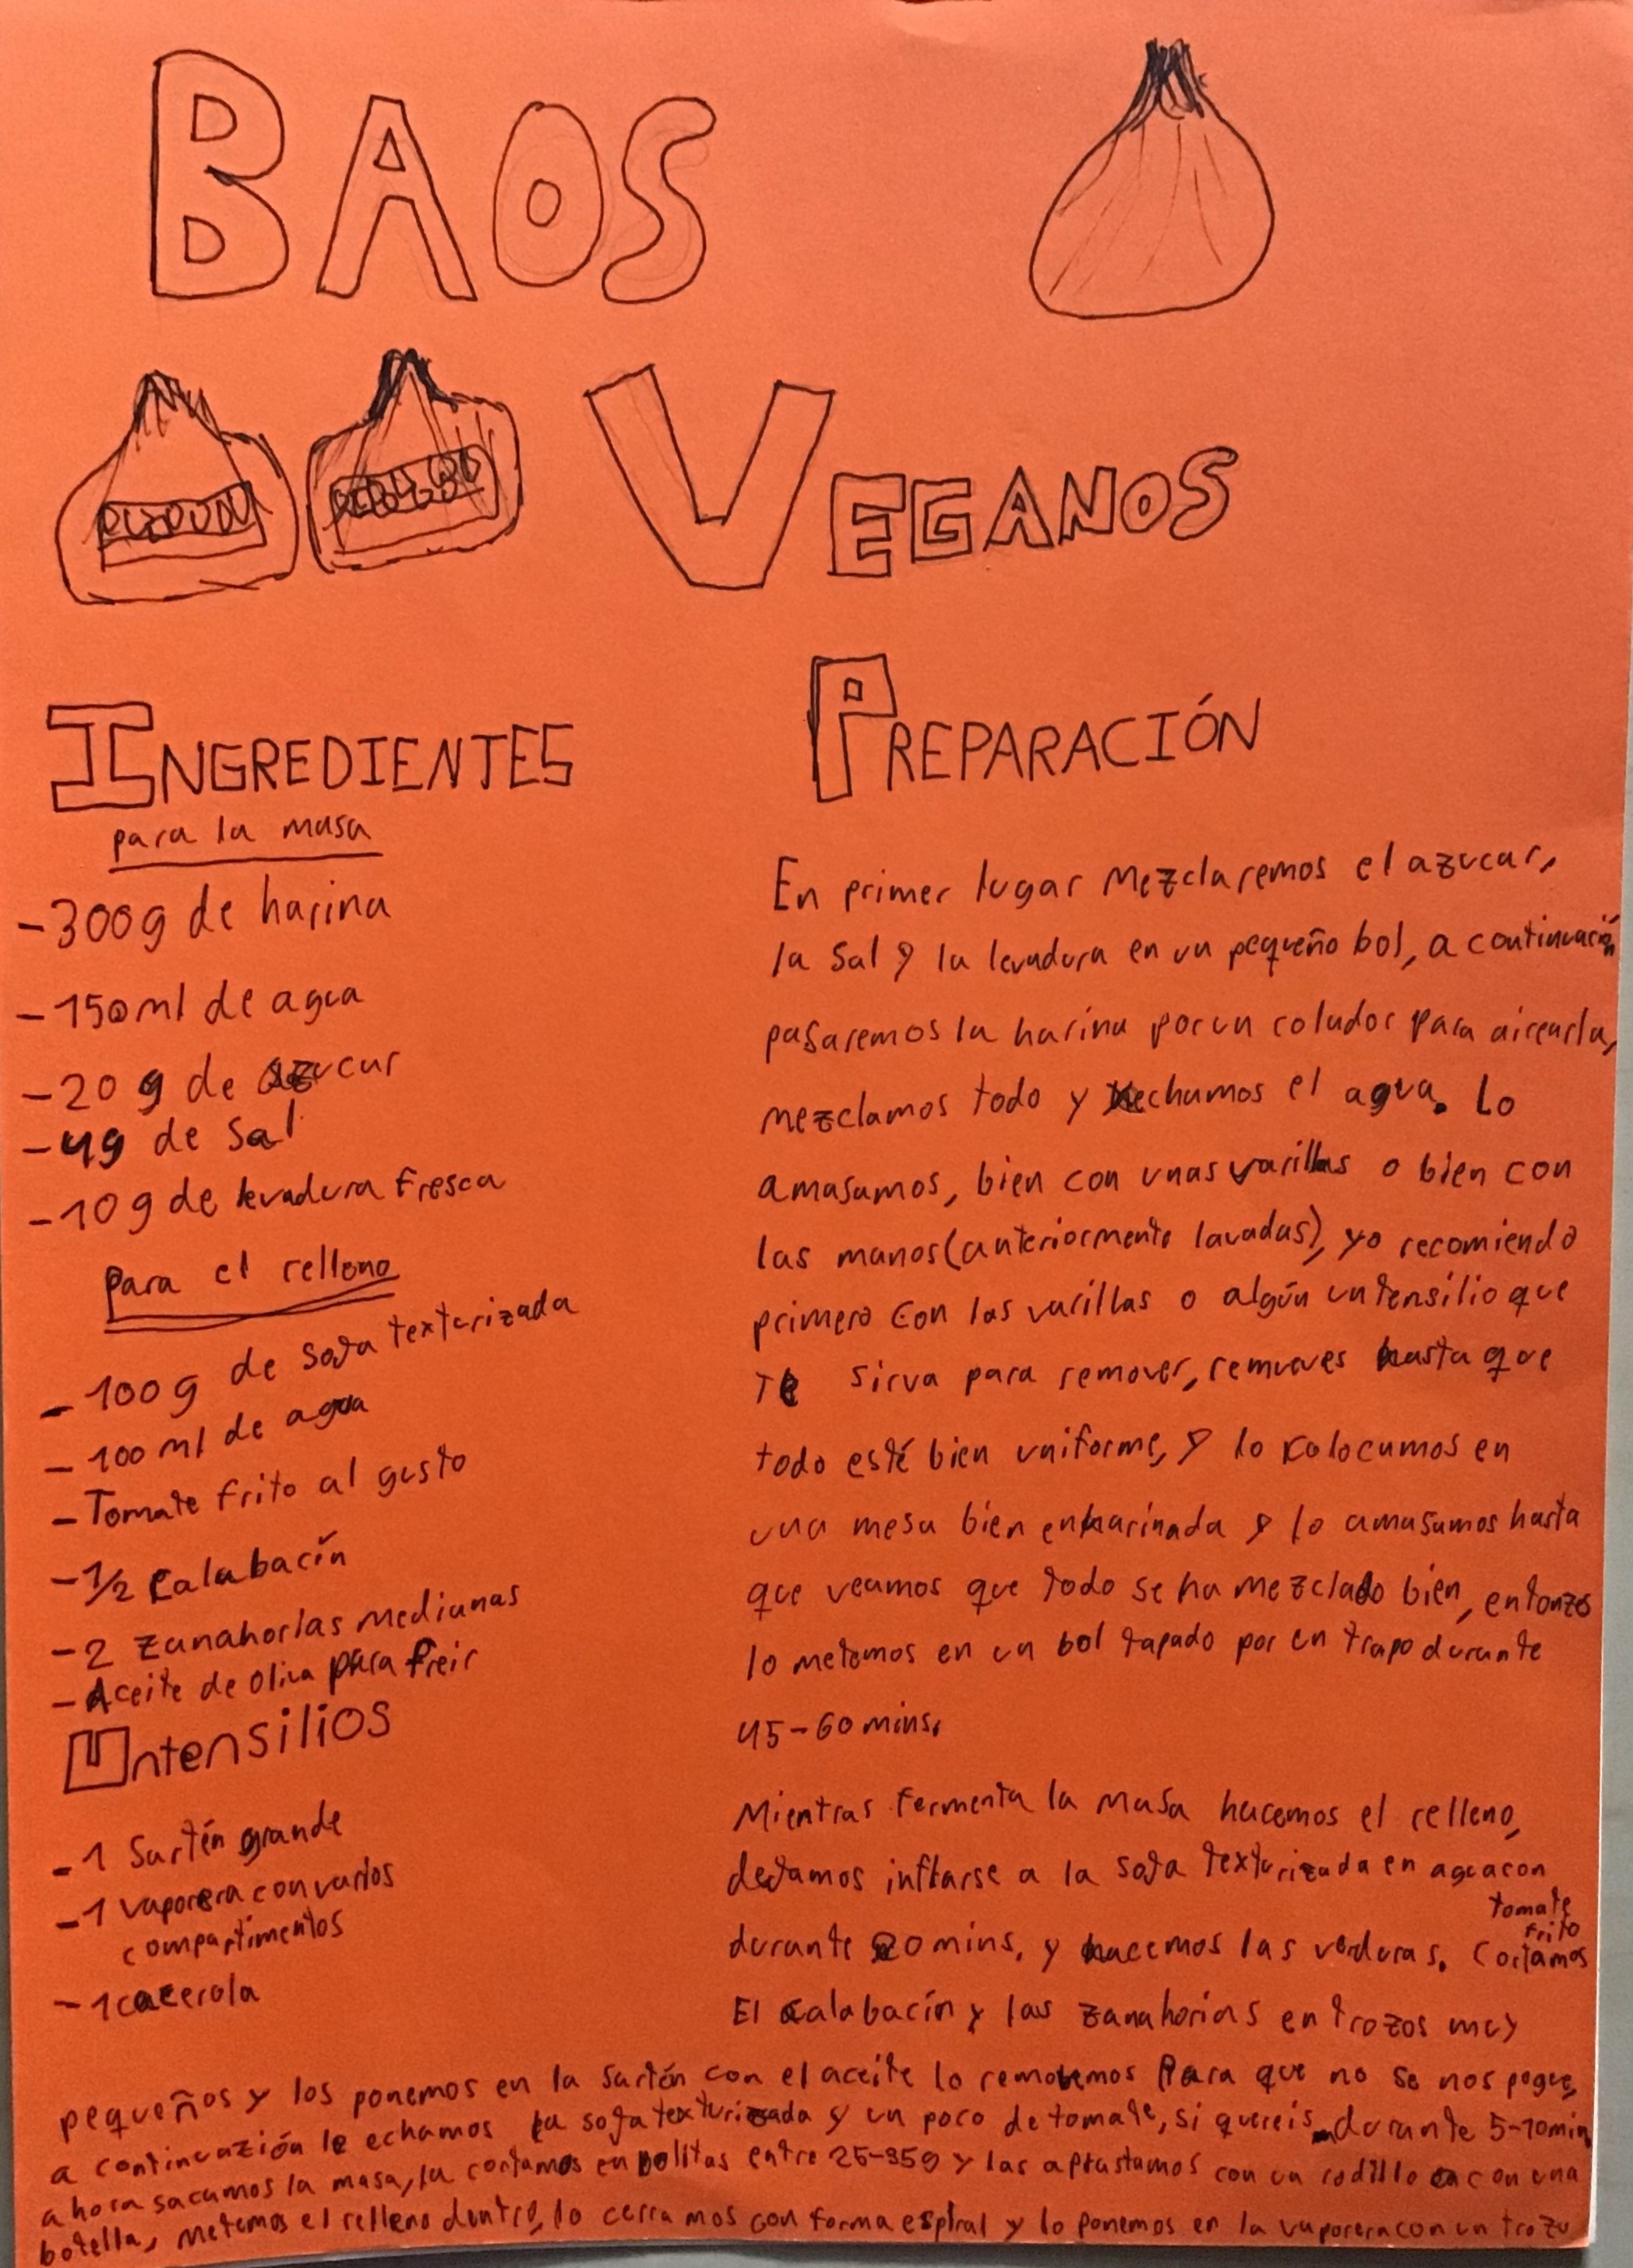 BAOS
VEGANOS
INGREDIENTES
para la masa
-300g de harina
-150ml de agua
-20 g de azucar
-4g de sal
-10 g de levadura fresca
para el relleno
- 100 g de soja texturizada
- 100 ml de agua
- Tomate frito al gusto
- 1/2 calabacín
- 2 zanahorias medianas
- Aceite de oliva para freir
Untensilios
- 1 Sartén grande
- 1 vaporera con varios
compartimentos
- 1 cacerola
PREPARACIÓN
En primer lugar mezclaremos el azucar,
la sal y la levadura en un pequeño bol, a continuación
pasaremos la harina por un colador para airearla,
mezclamos todo y echamos el agua. Lo
amasamos, bien con unas varillas o bien con
las manos (anteriormente lavadas), yo recomiendo
primero con las varillas o algún untensilio que
te sirva para remover, remueves hasta que
todo esté bien uniforme, y lo kolocamos en
una mesa bien enharinada y lo amasamos hasta
que veamos que todo se ha mezclado bien, entonzes
lo metemos en un bol tapado por un trapo durante
45-60 mins.
Mientras fermenta la masa hacemos el relleno,
dejamos inflarse a la soja texturizada en agua con
tomate
frito
durante 20 mins, y hacemos las verduras. Cortamos
El calabacín y las zanahorias en trozos muy
pequeños y los ponemos en la sartén con el aceite lo removemos Para que no se nos pegue,
a continuazión le echamos la soja texturizada y un poco de tomate, si quereis durante 5-10min
ahora sacamos la masa, la cortamos en bolitas entre 25-35g y las aplastamos con un rodillo o con una
botella, metemos el relleno dentro, lo cerramos con forma espiral y lo ponemos en la vaporera con un trozo